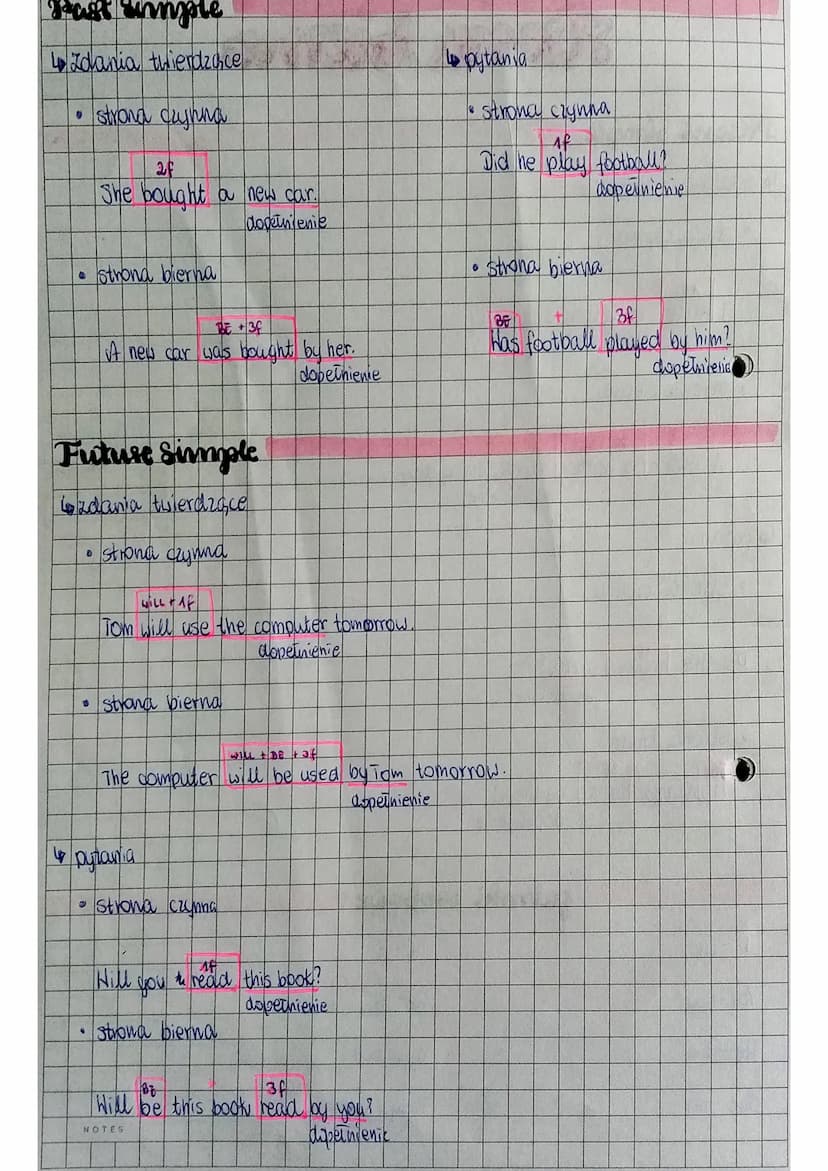 Past Simple
↳ zdania twierdzące
• strona czynna
2f
She bought a new car.
dopełnienie
• strona bierna
BE + 3f
A new car was bought by her.
dopełnienie
↳ pytania
• strona czynna
1f
Did he play football?
dopełnienie
• strona bierna
BE + 3f
Was football played by him?
dopełnienie
Future Simple
↳ zdania twierdzące
• strona czynna
will + 1f
Tom will use the computer tomorrow.
dopełnienie
• strona bierna
will + BE + 3f
The computer will be used by Tom tomorrow.
dopełnienie
↳ pytania
• strona czynna
1f
Will you read this book?
dopełnienie
• strona bierna
BE 3f
Will be this book read by you?
dopełnienie
NOTES